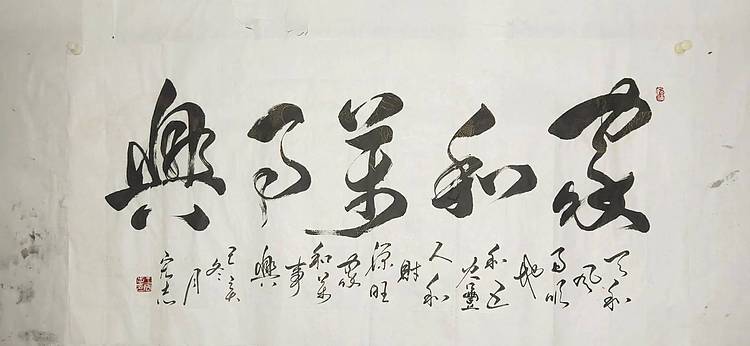 家和萬事興
天和
風
雨順
地
和五
谷豐
人和
財
源旺
家
和萬
事
興
冬
月
宏志